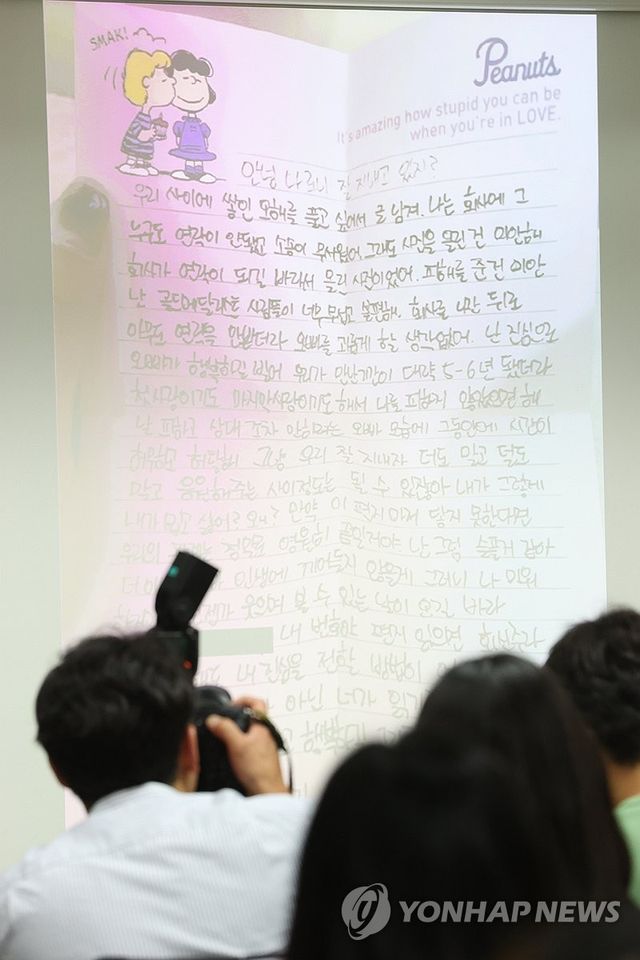 SMAK!
Peanuts
It's amazing how stupid you can be
when you're in LOVE.
안녕 나 잘 지내고 있지?
우리 사이에 쌓인 오해를 풀고 싶어서 글 남겨. 나는 회사에 그
누구도 연락이 안됐고 소송이 무서웠어. 그래도 사진을 올린건 미안해
회사가 연락이 되길 바라서 올린 사진이었어. 피해를 준건 미안
난 골드메달리스트 사람들이 너무 무섭고 슬펐해. 회사를 나간 뒤로
아무도 연락을 안봤더라 오빠를 괴롭게 할 생각없어. 난 진심으로
오빠가 행복하길 빌어 우리가 만난기간이 대략 5-6년 됐더라
첫사랑이기도 마지막사랑이기도해서 나를 피하지 않았으면 해
날 피하고 상대 조차 안하려는 오빠 모습에 그동안에 시간이
허무하고 허탈해. 그냥 우리 잘 지내자 더도 말고 덜도
말고 응원해주는 사이정도는 될 수 있잖아 내가 그렇게
내가 밉고 싫어? 왜? 만약 이 편지마저 닿지 못한다면
우리의 영원히 끝일거야 난 그럼 슬플거 같아
인생에 끼어들지 않을게 그러니 나 미워
웃으며 볼 수 있는 날이 오길 바라
내 번호야 편지 읽으면 회신주라
내 진심을 전할 방법이
아닌 너가 읽기
YONHAP NEWS